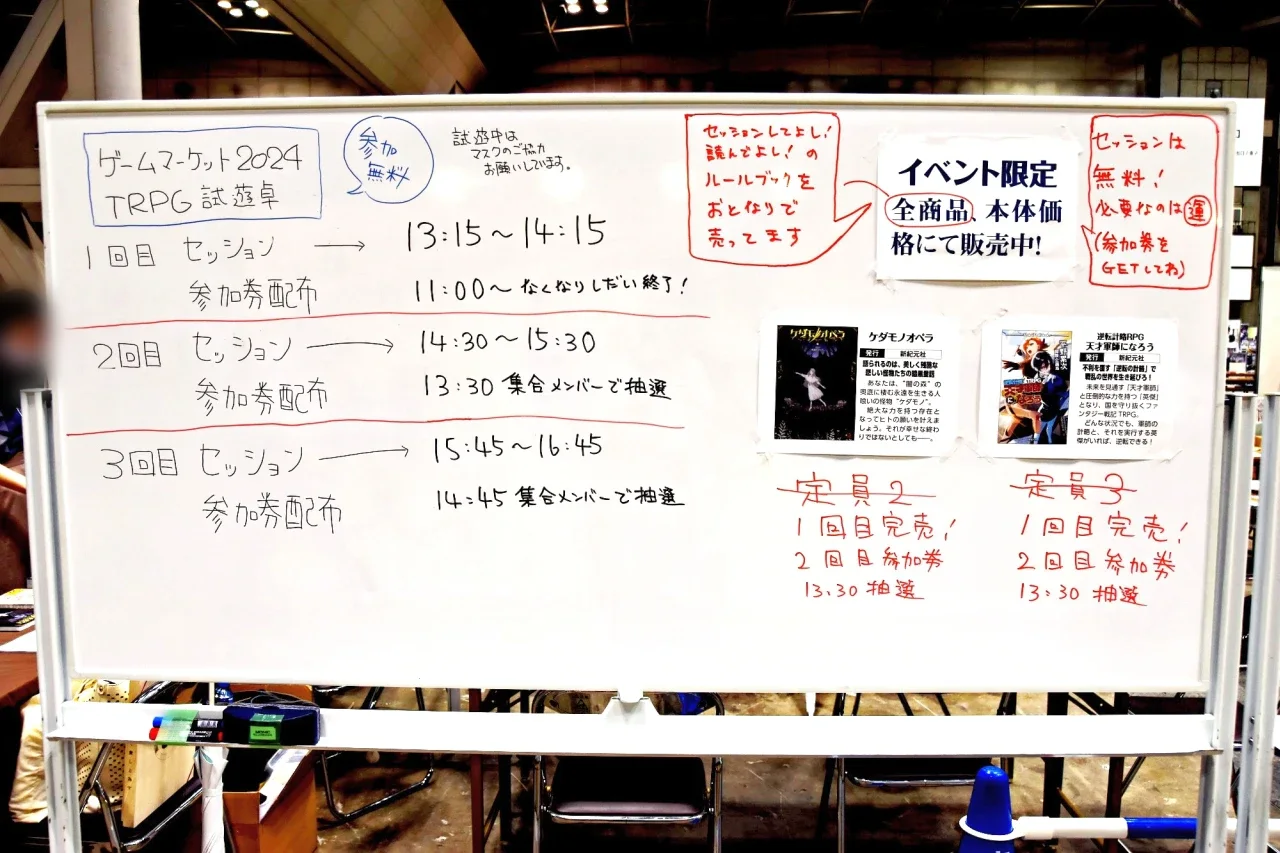 ゲームマーケット2024
TRPG 試遊卓
参加
無料
試遊中は
マスクのご協力
お願いしています。
1回目 セッション → 13:15〜14:15
参加券配布 11:00〜 なくなりしだい終了!
2回目 セッション → 14:30〜15:30
参加券配布 13:30 集合メンバーで抽選
3回目 セッション → 15:45〜16:45
参加券配布 14:45 集合メンバーで抽選
セッションしてよし!
読んでよし! の
ルールブックを
おとなりで
売ってます
イベント限定
全商品、本体価
格にて販売中!
セッションは
無料!
必要なのは運
(参加券を
GETしてね)
ケダモノオペラ
ケダモノオペラ
発行 新紀元社
語られるのは、美しく残酷な
悲しい怪物たちの暗黒童話
あなたは、“闇の森”の
奥底に棲む永遠を生きる人
喰いの怪物“ケダモノ”。
絶大な力を持つ存在と
なってヒトの願いを叶えま
しょう。それが幸せな終わ
りではないとしても――。
定員2
1回目完売!
2回目参加券
13:30 抽選
逆転計略RPG
天才軍師になろう
発行 新紀元社
不利を覆す「逆転の計略」で
戦乱の世界を生き延びろ!
未来を見通す「天才軍師」
と圧倒的な力を持つ「英傑」
となり、国を守り抜くファ
ンタジー戦記TRPG。
どんな状況でも、軍師の
計略と、それを実行する英
傑がいれば、逆転できる!
定員3
1回目完売!
2回目参加券
13:30 抽選